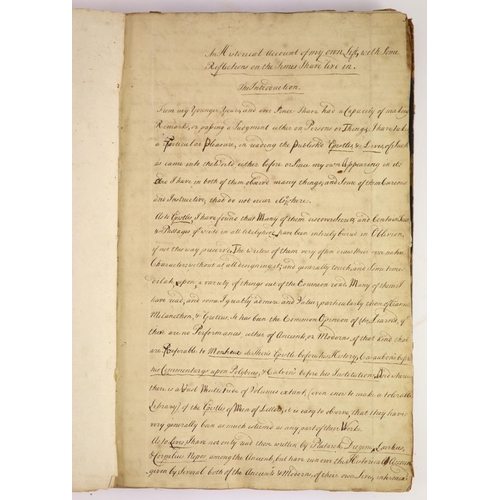 An Historical Account of my own Life, with Some
Reflections on the Times I have live in.
The Introduction.
From my Younger Years, and ever Since I have had a Capacity of making
Remarks, or passing a Judgment either on Persons or Things, I have took
a Particular Pleasure, in reading the Publish'd Epistles & Lives, of such
as came into the World either before or Since my own Appearing in it:
and I have in both of them observ'd many things, and Some of them Curious
and Instructive, that do not occur elsewhere.
As to Epistles, I have found that Many of them discover Secrets, and Contain
Passages of which in all likelyhood have been intirely buried in Oblivion,
if not this way preserv'd. The Writers of them very often draw their own
Characters without at all designing it; and generally touch, and Some times
upon, a variety of things out of the Common road. Many of them I
have read, and some I greatly admire and Value; particularly those of
Melancthon, & Grotius. It has been the Common Opinion of the Learned, if
there are no Performances, either of Ancients or Moderns, of that Kind that
are Preferable to Epistle before his History, Casaubon's before
his Commentary upon Polybius, & Calvin's before his Institutions. And
there is a Vast Multitude of Volumes extant, (even enow to make a tolerable
Library) of the Epistles of Men of Letters, it is easy to observe, that they have
very generally been as much esteem'd as any part of their Works.
As to Lives, I have not only read them written by Plutarch, Diogenes Laertius,
& Cornelius Nepos among the Ancients, but have run over the Historical Accounts
given by Several both of the Ancients & Moderns, of their own Lives, intermix'd